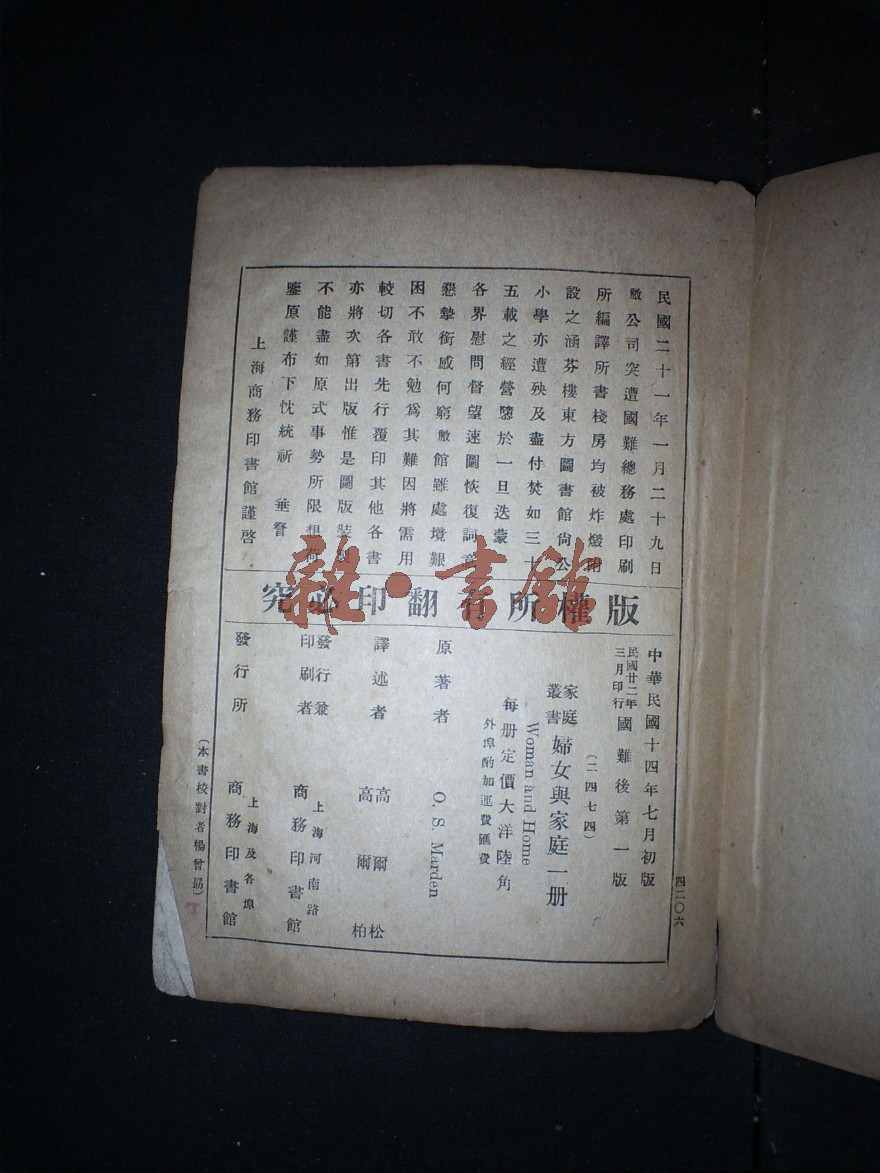 民國二十一年一月二十九日
敝公司突遭國難總務處印刷
所編譯所書棧房均被炸燬附
設之涵芬樓東方圖書館尚公
小學亦遭殃及盡付焚如三十
五載之經營隳於一旦迭蒙
各界慰問督望速圖恢復詞意
懇摯銜感何窮敝館雖處境艱
困不敢不勉爲其難因將需用
較切各書先行覆印其他各書
亦將次第出版惟是圖版裝製
不能盡如原式事勢所限想荷
鑒原謹布下忱統祈 垂詧
上海商務印書館謹啓
版權所有翻印必究
四二〇六
中華民國十四年七月初版
民國廿二年三月印行 國難後第一版
(二四七四)
家庭叢書 婦女與家庭一册
Woman and Home
每册定價大洋陸角
外埠酌加運費匯費
原著者 O. S. Marden
譯述者 高爾松 高爾柏
發行兼印刷者 上海河南路 商務印書館
發行所 上海及各埠 商務印書館
(本書校對者楊曾勗)
雜·書館